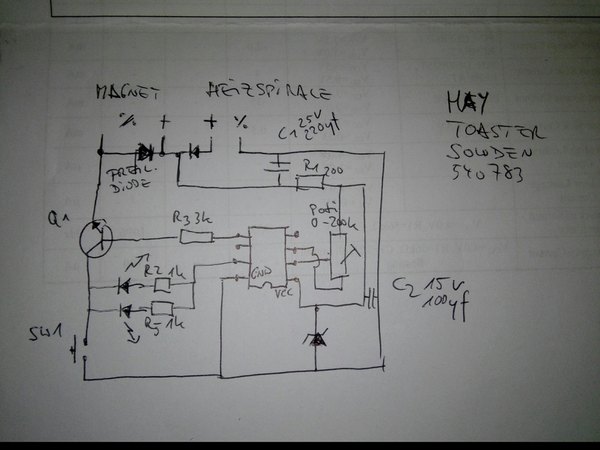 MAGNET HEIZSPIRALE
% + + %
C1 25V
220µf
HAY
TOASTER
SOWDEN
540783
FREIL.
DIODE
R1 200
Q1
R3 3k
Poti
0-200k
R2 1k
GND
VCC
C2 15V
100µf
R5 1k
SW1